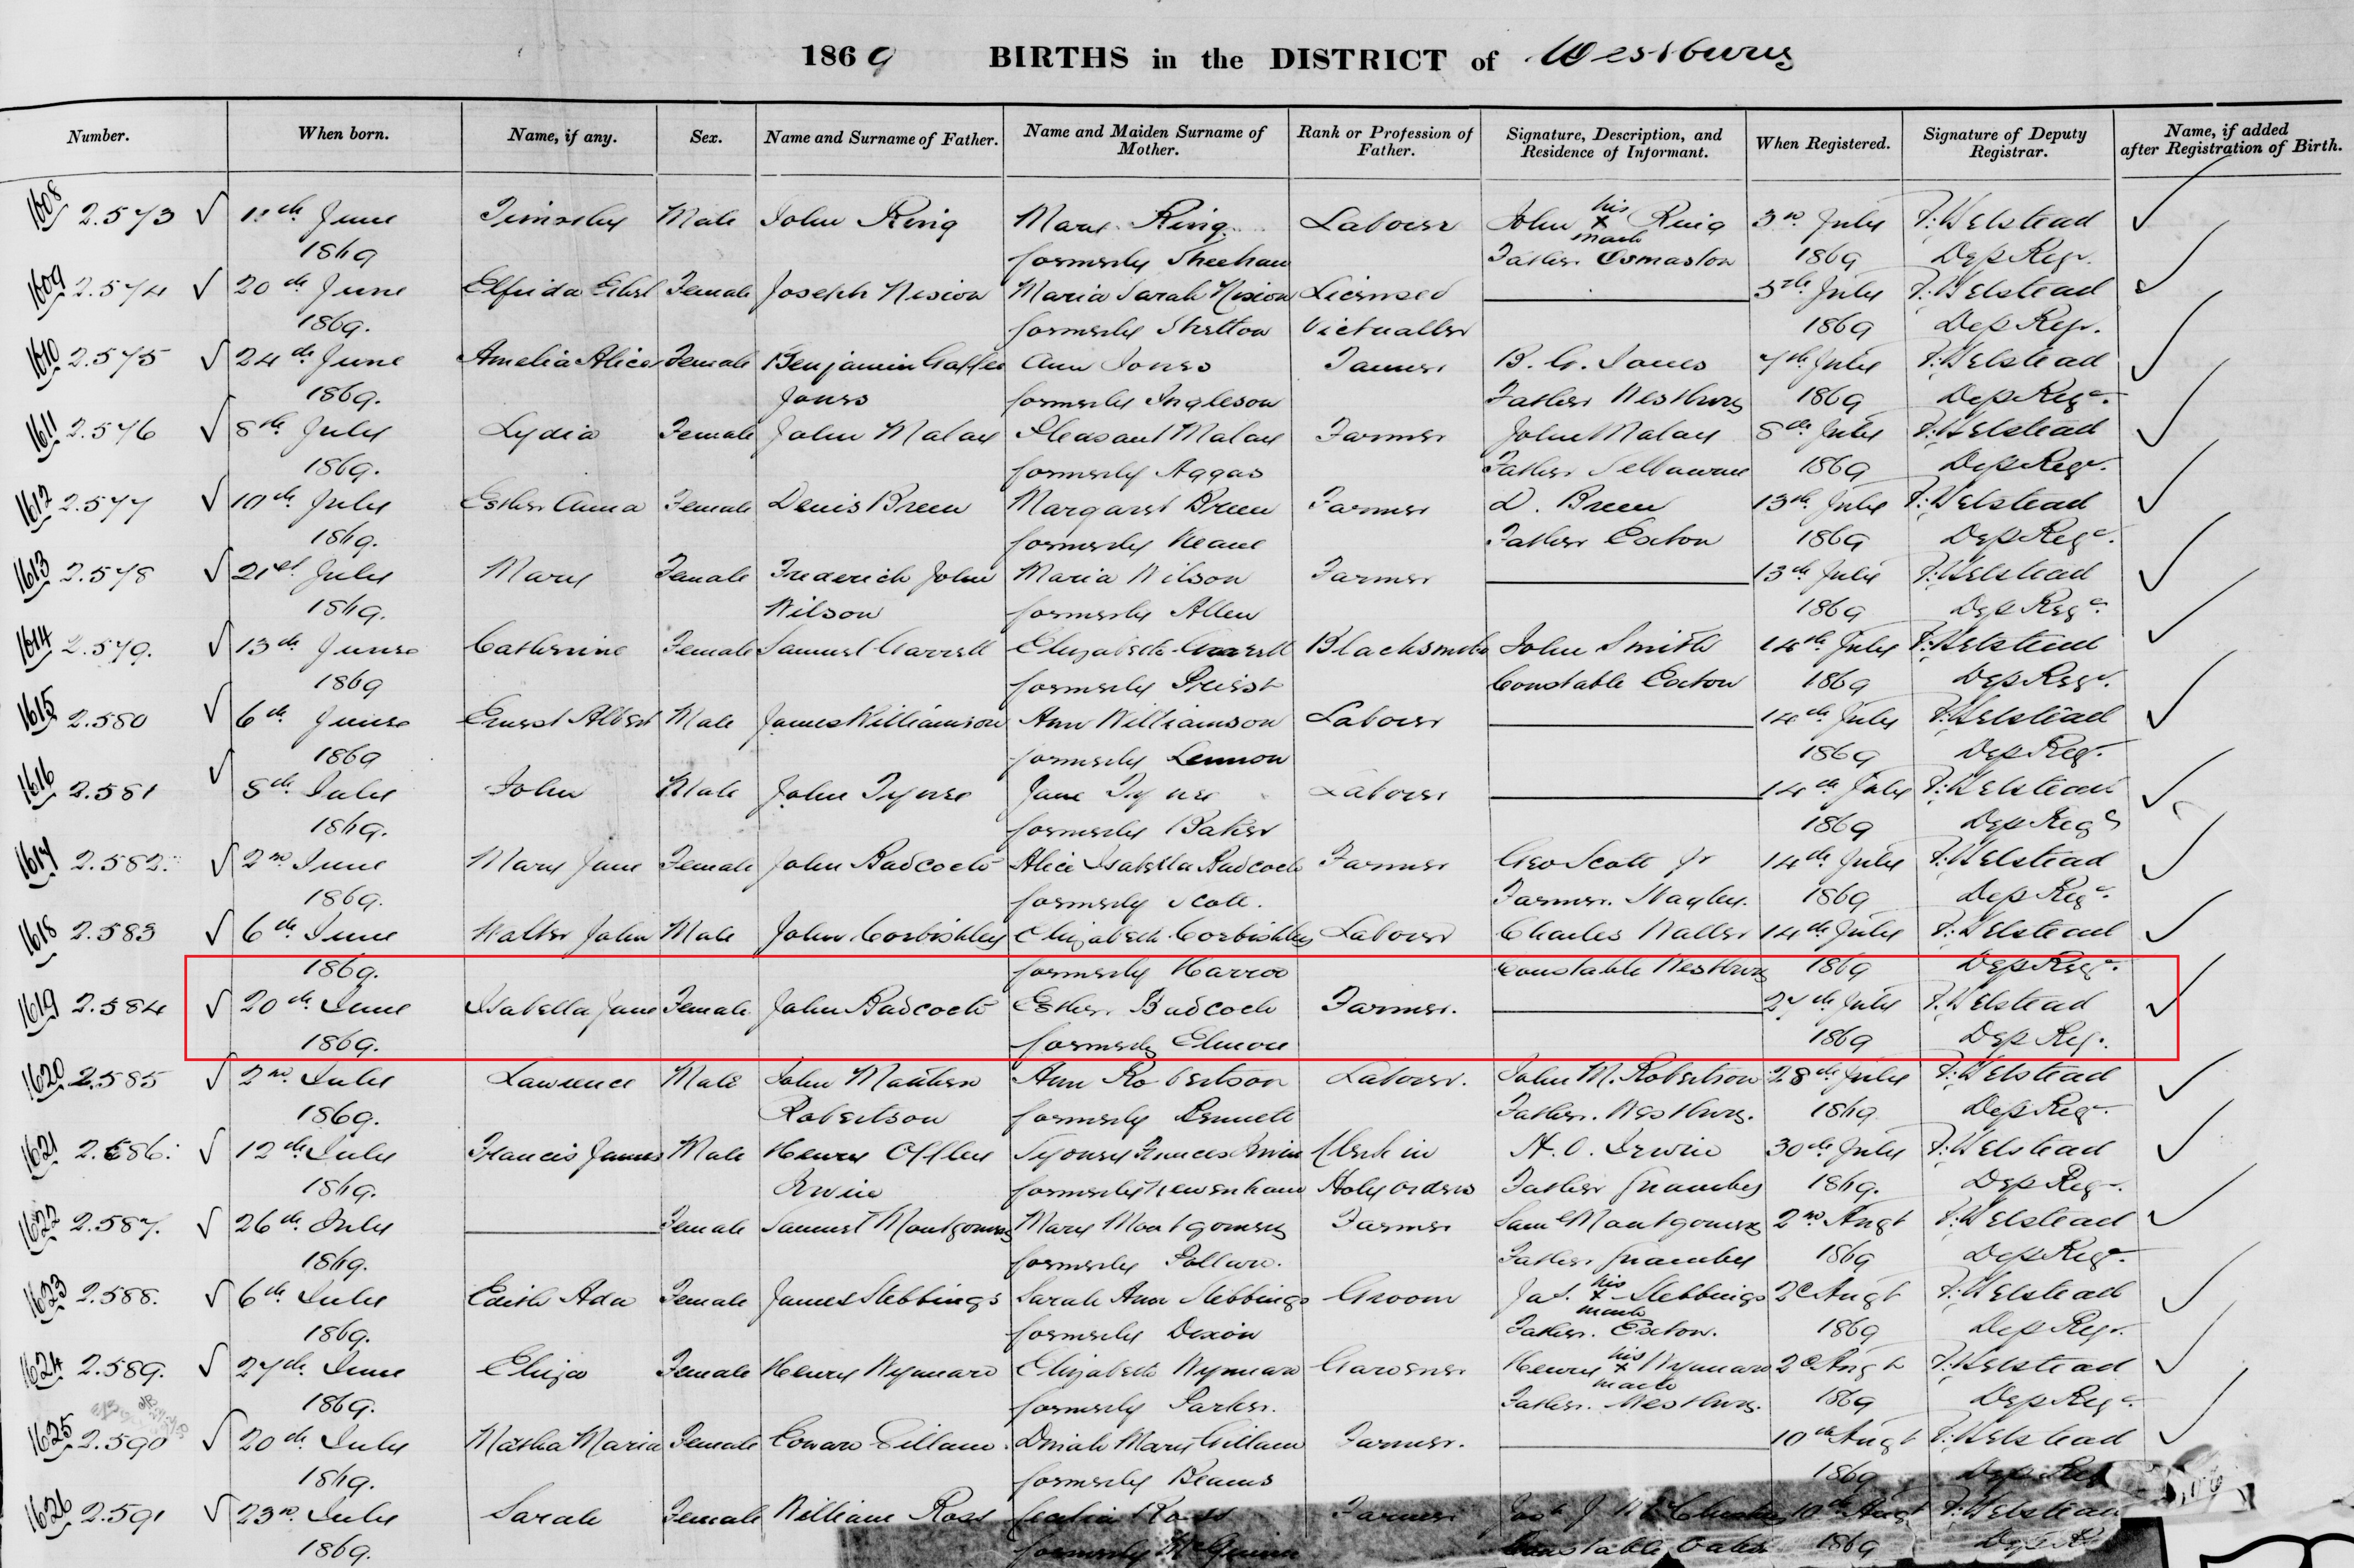 1869 BIRTHS in the DISTRICT of Westbury
Number. When born. Name, if any. Sex. Name and Surname of Father. Name and Maiden Surname of Mother. Rank or Profession of Father. Signature, Description, and Residence of Informant. When Registered. Signature of Deputy Registrar. Name, if added after Registration of Birth.
1608 2.573 June Timothy Male John King Mary King Labourer John his x King 3rd July F. Belstead
1869 formerly Sheehan mark Father Osmaston 1869 Dep Regr.
1609 2.574 20th June Elfrida Ethel Female Joseph Nixion Maria Sarah Nixion Licensed 5th July F. Belstead
1869. formerly Shelton Victualler 1869 Dep Regr.
1610 2.575 24th June Amelia Alice Female Benjamin Ann Jones B. G. Jones 7th July F. Belstead
1869. Jones formerly Ingleson Father Westbury 1869 Dep Regr.
1611 2.576 8th July Lydia Female John Malay Pleasant Malay Farmer John Malay 8th July F. Belstead
1869. formerly Aggas Father Selbourne 1869 Dep Regr.
1612 2.577 10th July Esther Anna Female Denis Breen Margaret Breen Farmer D. Breen 13th July F. Belstead
1869. formerly Keane Father Exton 1869 Dep Regr.
1613 2.578 21st July Mary Female Frederick John Maria Wilson Farmer 13th July F. Belstead
1869. Wilson formerly Allen 1869 Dep Regr.
1614 2.579. 13th June Catherine Female Samuel Garrett Elizabeth Garrett Blacksmith John Smith 14th July F. Belstead
1869 formerly Priest Constable Exton 1869 Dep Regr.
1615 2.580 6th June Ernest Albert Male James Williamson Ann Williamson Labourer 14th July F. Belstead
1869 formerly Lennon 1869 Dep Regr.
1616 2.581 8th July John Male John Tyner Jane Tyner Labourer 14th July F. Belstead
1869. formerly Baker 1869 Dep Regr
1617 2.582. 2nd June Mary Jane Female John Badcock Alice Isabella Badcock Farmer Geo Scott Jr 14th July F. Belstead
1869. formerly Scott. Farmer. Hagley. 1869 Dep Regr.
1618 2.583 6th June Walter John Male John Corbishley Elizabeth Corbishley Labourer Charles Waller 14th July F. Belstead
1869. formerly Constable Westbury 1869 Dep Regr.
1619 2.584 20th June Isabella Jane Female John Badcock Esther Badcock Farmer. 27th July F. Belstead
1869. formerly Elmore 1869 Dep Reg.
1620 2.585 2nd July Lawrence Male John Ann Robertson Labourer. John M. Robertson 28th July F. Belstead
1869. Robertson formerly Father. Westbury. 1869 Dep Regr.
1621 2.586. 12th July Francis James Male Henry Offley Frances Irwin Clerk in H. O. Irwin 30th July F. Belstead
1869. Irwin formerly Newenham Holy Orders Father Quamby 1869. Dep Regr.
1622 2.587. 26th July Female Samuel Montgomery Mary Montgomery Farmer Saml Montgomery 2nd Augt F. Belstead
1869. formerly Father Quamby 1869 Dep Regr.
1623 2.588. 6th July Edith Ada Female James Stebbings Sarah Ann Stebbings Groom Jas. his x Stebbings 2d Augt F. Belstead
1869. formerly Dixon mark Father. Exton. 1869 Dep Regr.
1624 2.589. 27th June Eliza Female Henry Wynward Elizabeth Wynward Gardener Henry his x Wynward 2d Augt F. Belstead
1869. formerly Parker. mark Father. Westbury. 1869 Dep Regr.
1625 2.590 20th July Martha Maria Female Edward Gillam. Dinah Mary Gillam Farmer. 10th Augt F. Belstead
1869. formerly Beams 1869 Dep Reg
1626 2.591 23rd July Sarah Female William Ross Ross Farmer 10th Augt F. Belstead
1869. formerly Constable 1869 Dep R